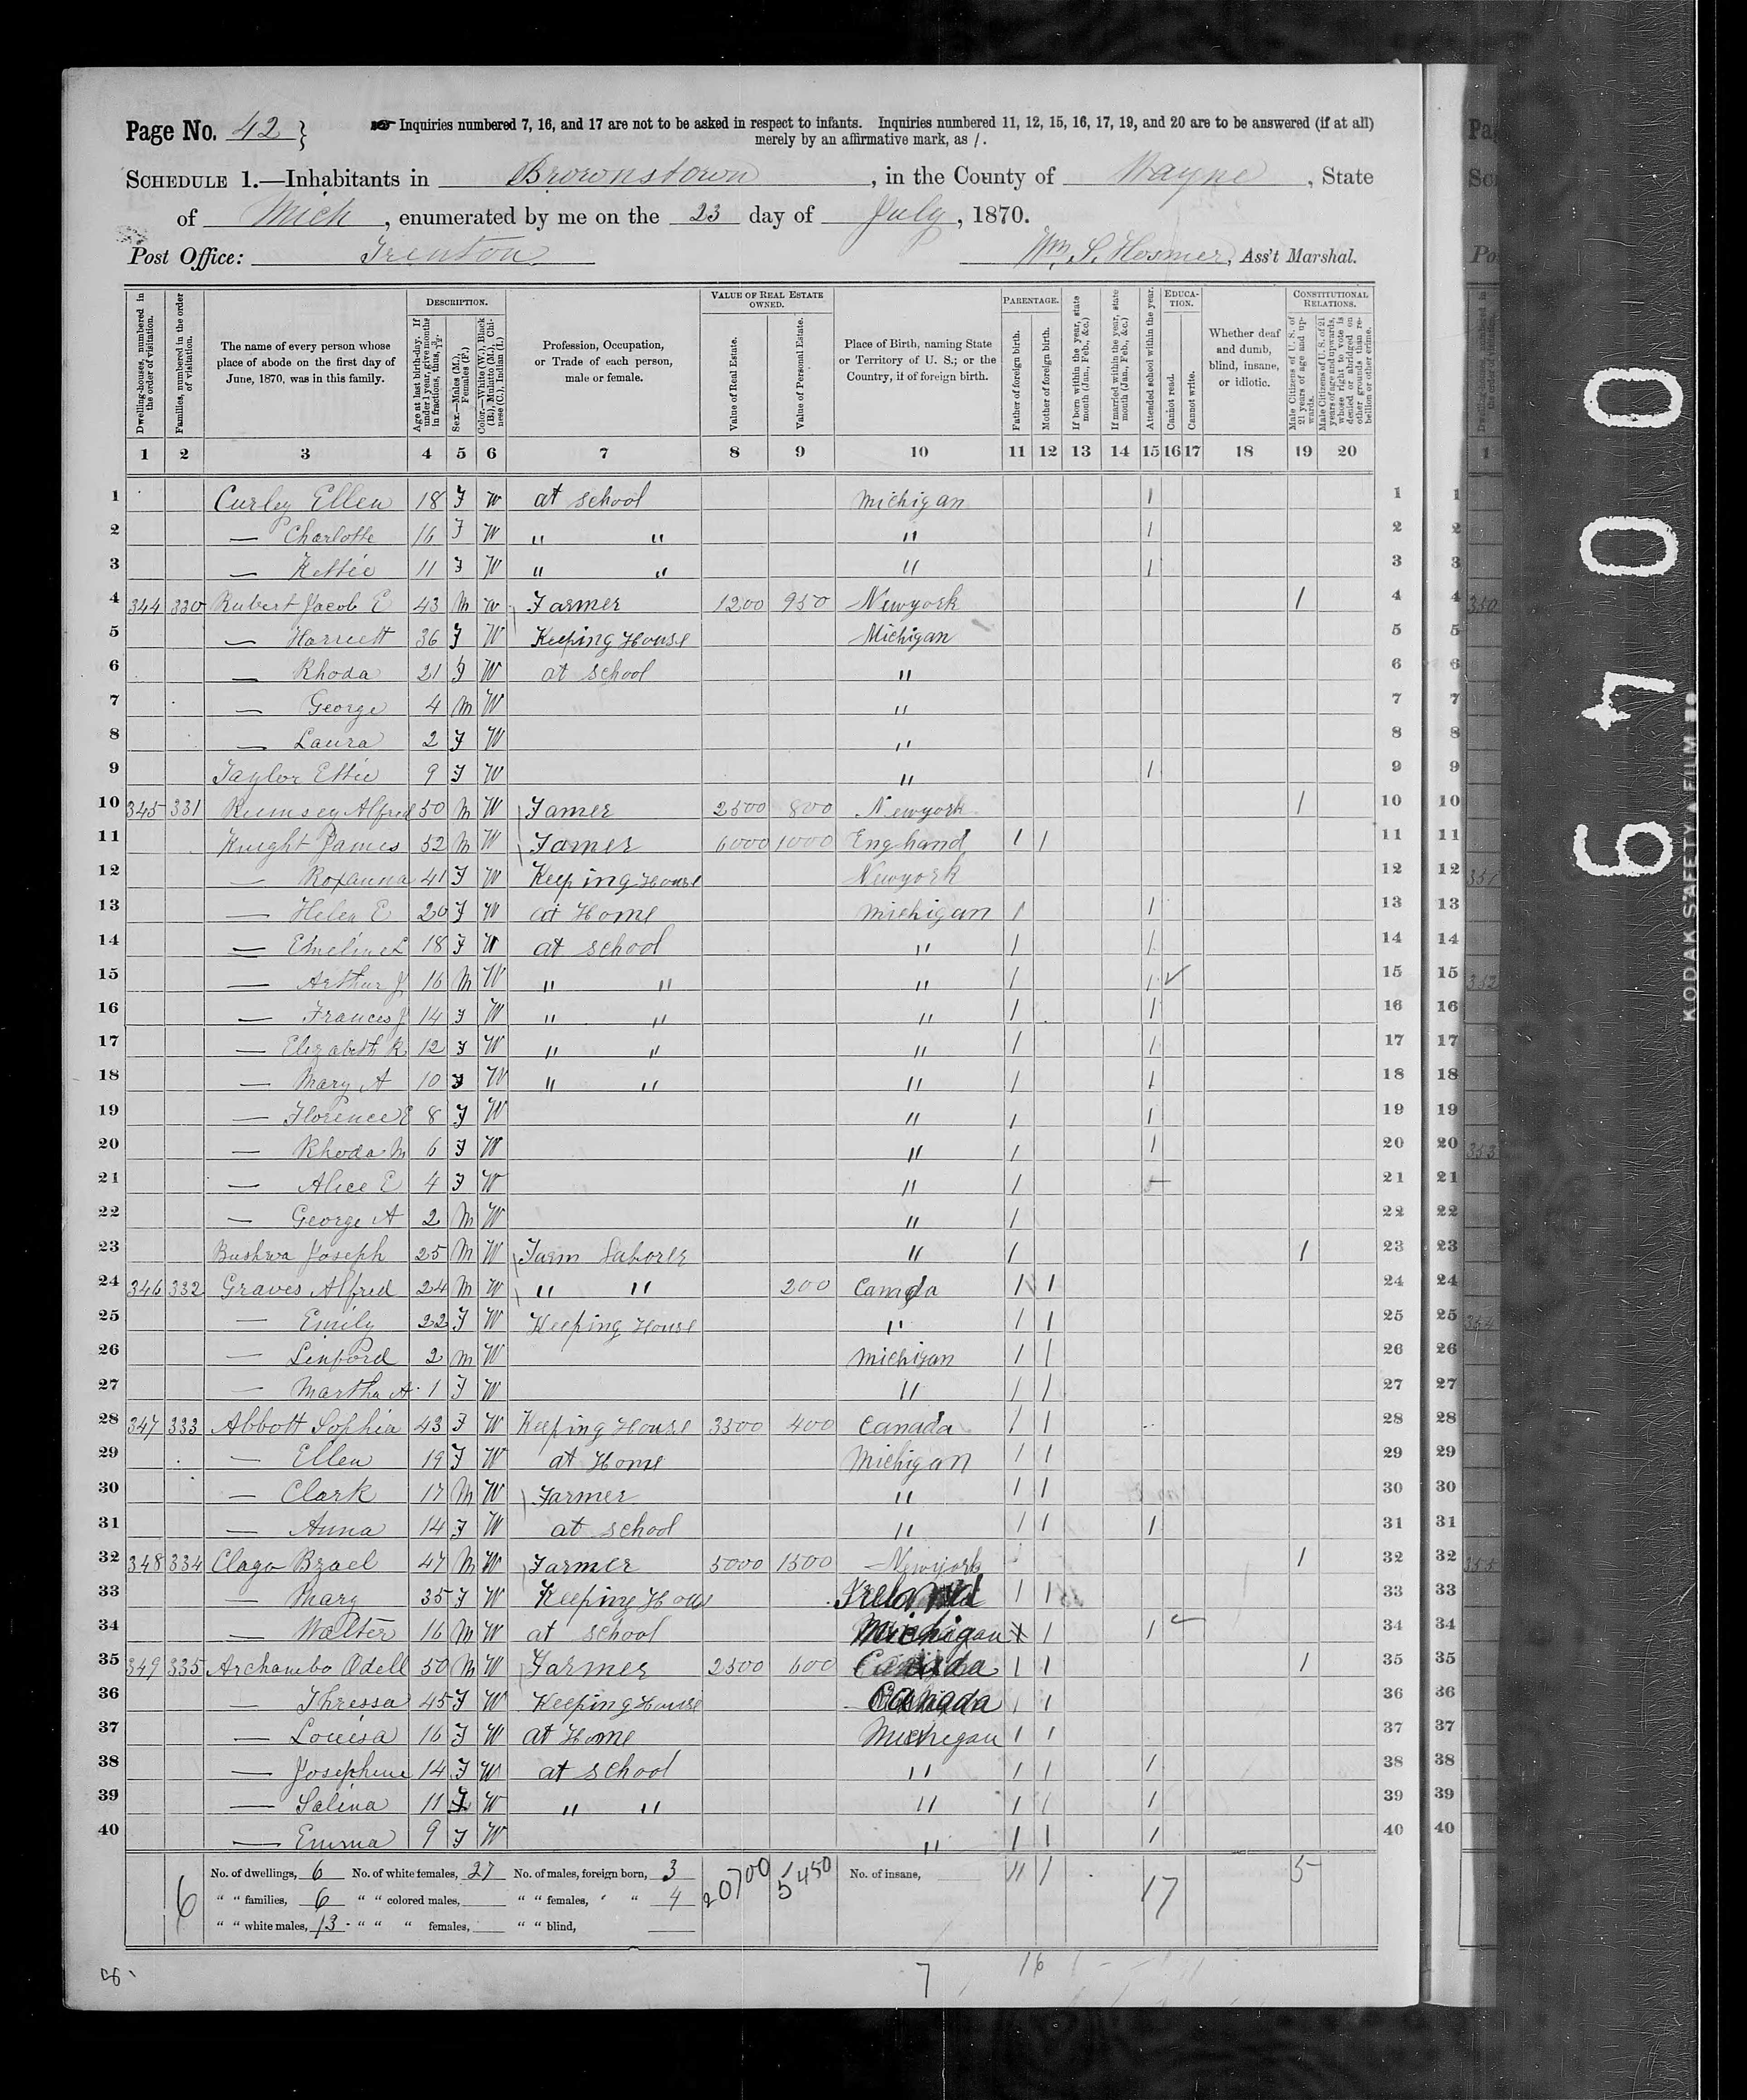 Page No. 42 }
☞ Inquiries numbered 7, 16, and 17 are not to be asked in respect to infants. Inquiries numbered 11, 12, 15, 16, 17, 19, and 20 are to be answered (if at all)
merely by an affirmative mark, as /.
SCHEDULE 1.—Inhabitants in Brownstown, in the County of Wayne, State
of Mich, enumerated by me on the 23 day of July, 1870.
Post Office: Trenton
Wm. S. Hosmer, Ass't Marshal.
Dwelling-houses, numbered in the order of visitation.
Families, numbered in the order of visitation.
The name of every person whose place of abode on the first day of June, 1870, was in this family.
DESCRIPTION.
Age at last birth-day. If under 1 year, give months in fractions, thus, 3/12.
Sex.—Males (M.), Females (F.)
Color.—White (W.), Black (B.), Mulatto (M.), Chinese (C.), Indian (I.)
Profession, Occupation, or Trade of each person, male or female.
VALUE OF REAL ESTATE OWNED.
Value of Real Estate.
Value of Personal Estate.
Place of Birth, naming State or Territory of U. S.; or the Country, if of foreign birth.
PARENTAGE.
Father of foreign birth.
Mother of foreign birth.
If born within the year, state month (Jan., Feb., &c.)
If married within the year, state month (Jan., Feb., &c.)
Attended school within the year.
EDUCATION.
Cannot read.
Cannot write.
Whether deaf and dumb, blind, insane, or idiotic.
CONSTITUTIONAL RELATIONS.
Male Citizens of U. S. of 21 years of age and upwards.
Male Citizens of U. S. of 21 years of age and upwards, whose right to vote is denied or abridged on other grounds than rebellion or other crime.
1 2 3 4 5 6 7 8 9 10 11 12 13 14 15 16 17 18 19 20
1 Curley Ellen 18 F W at school Michigan / 1
2 — Charlotte 16 F W " " " / 2
3 — Kettie 11 F W " " " / 3
4 344 330 Rubert Jacob E 43 M W Farmer 1200 950 Newyork / 4
5 — Harriett 36 F W Keeping House Michigan 5
6 — Rhoda 21 F W at school " 6
7 — George 4 M W " 7
8 — Laura 2 F W " 8
9 Taylor Ettie 9 F W " / 9
10 345 331 Rumsey Alfred 50 M W Famer 2500 800 Newyork / 10
11 Knight James 52 M W Famer 6000 1000 Enghand / / 11
12 — Roxanna 41 F W Keeping House Newyork 12
13 — Helen E 20 F W at Home Michigan / / 13
14 — Emeline L 18 F W at school " / / 14
15 — Arthur J 16 M W " " " / / ✓ 15
16 — Frances J 14 F W " " " / / 16
17 — Elizabeth R 12 F W " " " / / 17
18 — Mary A 10 F W " " " / / 18
19 — Florence E 8 F W " / / 19
20 — Rhoda M 6 F W " / / 20
21 — Alice E 4 F W " / 21
22 — George A 2 M W " / 22
23 Bushwa Joseph 25 M W Farm Laborer " / / 23
24 346 332 Graves Alfred 24 M W " " 200 Canada / / 24
25 — Emily 22 F W Keeping House " / / 25
26 — Linford 2 M W Michigan / / 26
27 — Martha A 1 F W " / / 27
28 347 333 Abbott Sophia 43 F W Keeping House 3500 400 Canada / / 28
29 — Ellen 19 F W at Home Michigan / / 29
30 — Clark 17 M W Farmer " / / 30
31 — Anna 14 F W at school " / / / 31
32 348 334 Clago Bzael 47 M W Farmer 5000 1500 Newyork / 32
33 — Mary 35 F W Keeping Hous Ireland / / 33
34 — Walter 16 M W at school Michigan / / ✓ 34
35 349 335 Archambo Odell 50 M W Farmer 2500 600 Canada / / / 35
36 — Thressa 45 F W Keeping House Canada / / 36
37 — Louisa 16 F W at Home Michigan / / 37
38 — Josephine 14 F W at school " / / / 38
39 — Salina 11 F W " " " / / / 39
40 — Emma 9 F W " / / / 40
No. of dwellings, 6 No. of white females, 27 No. of males, foreign born, 3 20700 5450 No. of insane, 5
6 " " families, 6 " " colored males, " " females, " " 4 17
" " white males, 13 " " " females, " " blind,
7 16
350
351
352
353
354
355
64009
KODAK SAFETY FILM